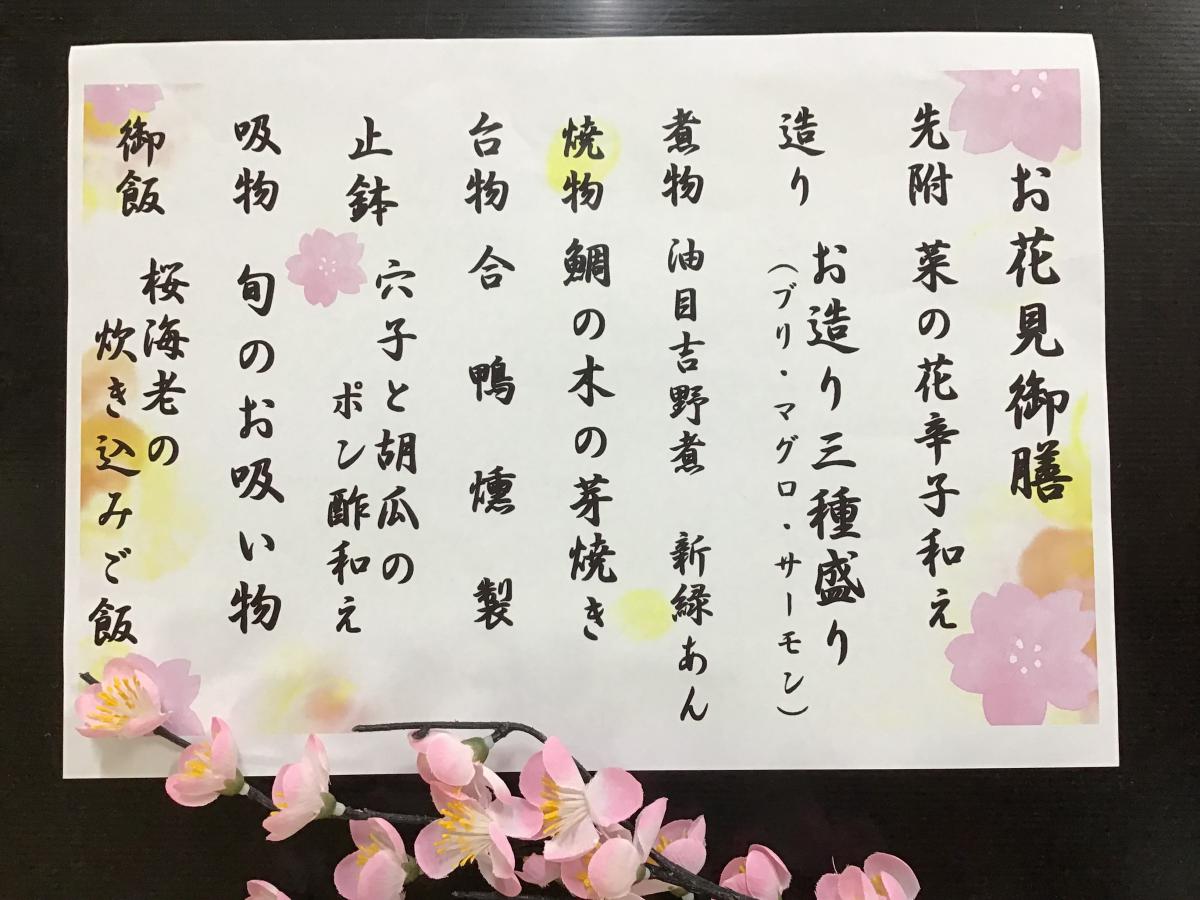 お花見御膳
先附 菜の花辛子和え
造り お造り三種盛り
（ブリ・マグロ・サーモン）
煮物 油目吉野煮 新緑あん
焼物 鯛の木の芽焼き
台物 合鴨燻製
止鉢 穴子と胡瓜の
ポン酢和え
吸物 旬のお吸い物
御飯 桜海老の
炊き込みご飯